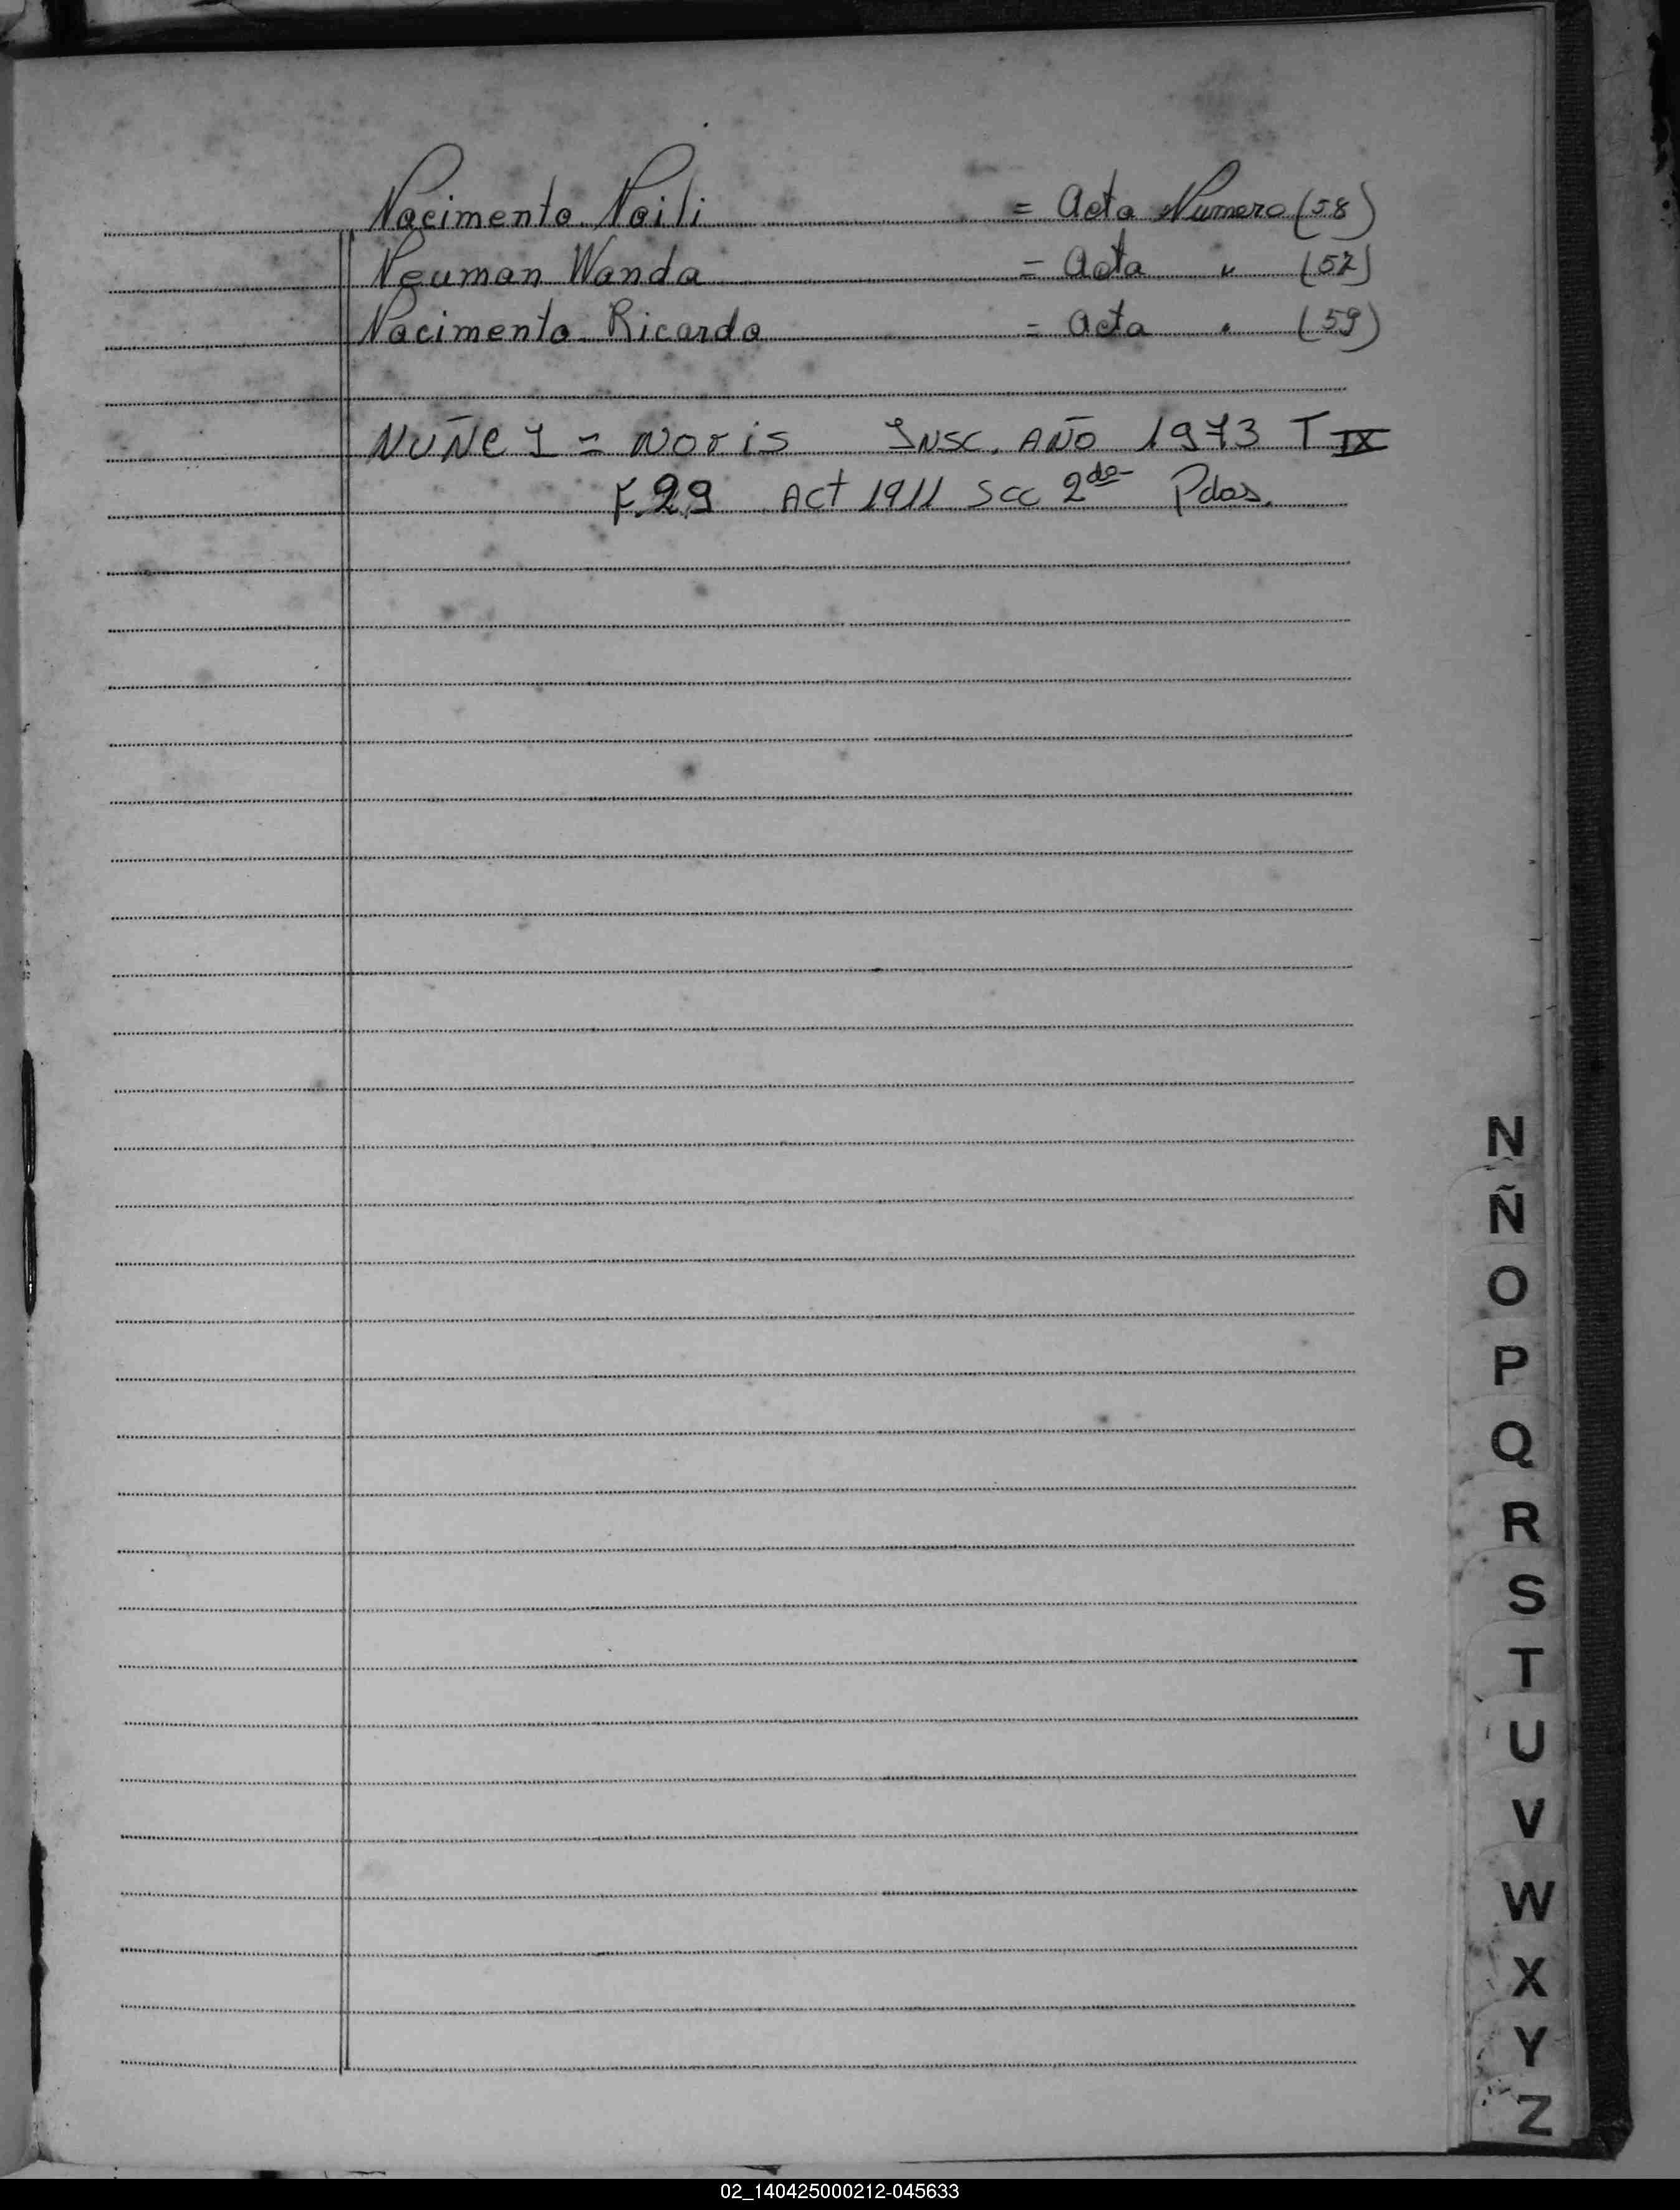 Nacimento Naili = Acta Numero (58)
Neuman Wanda = Acta " (57)
Nacimento Ricardo = Acta " (59)
NUÑEZ = NORIS INSC. AÑO 1973 T IX
F. 29 ACT 1911 Scc 2da Pdas.
N
Ñ
O
P
Q
R
S
T
U
V
W
X
Y
Z
02_140425000212-045633